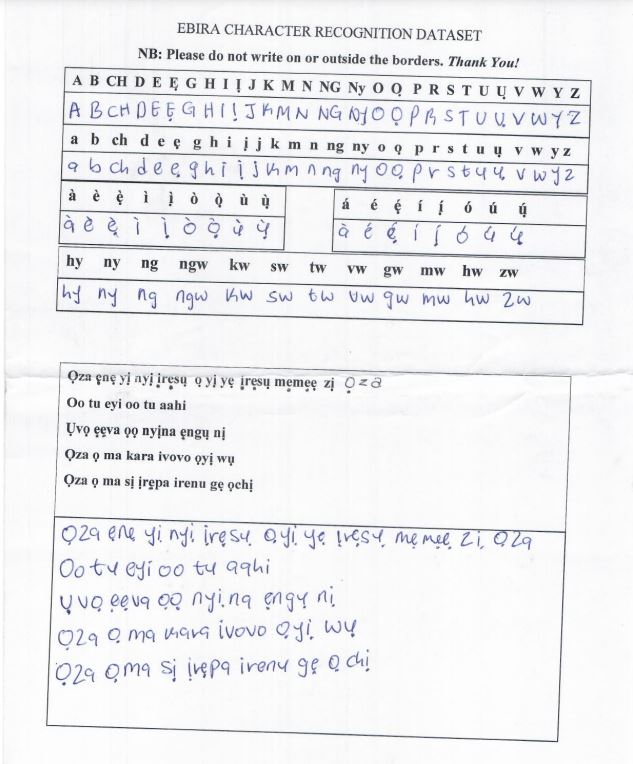 EBIRA CHARACTER RECOGNITION DATASET
NB: Please do not write on or outside the borders. Thank You!
A B CH D E Ẹ G H I Ị J K M N NG Ny O Ọ P R S T U Ụ V W Y Z
A B CH D E Ẹ G H I Ị J K M N NG Ny O Ọ P R S T U Ụ V W Y Z
a b ch d e ẹ g h i ị j k m n ng ny o ọ p r s t u ụ v w y z
a b ch d e ẹ g h i ị j k m n ng ny o ọ p r s t u ụ v w y z
à è ẹ̀ ì ị̀ ò ọ̀ ù ụ̀
à è ẹ̀ ì ị̀ ò ọ̀ ù ụ̀
á é ẹ́ í ị́ ó ú ụ́
à é ẹ́ í ị́ ó ú ụ́
hy ny ng ngw kw sw tw vw gw mw hw zw
hy ny ng ngw kw sw tw vw gw mw hw zw
Ọza ẹnẹ yị nyị ịrẹsụ ọ yị yẹ ịrẹsụ mẹmẹẹ zị Ọza
Oo tu eyi oo tu aahi
Ụvọ ẹẹva ọọ nyịna ẹngụ nị
Ọza ọ ma kara ivovo ọyị wụ
Ọza ọ ma sị ịrẹpa irenu gẹ ọchị
Ọza ẹnẹ yị nyị ịrẹsụ ọ yị yẹ ịrẹsụ mẹmẹẹ zị Ọza
Oo tu eyi oo tu aahi
Ụvọ ẹẹva ọọ nyịna ẹngụ nị
Ọza ọ ma kara ivovo ọyị wụ
Ọza ọ ma sị ịrẹpa irenu gẹ ọchị